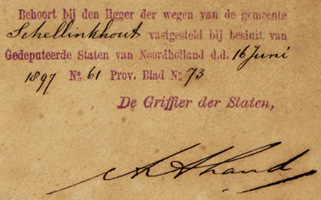 Behoort bij den ligger der wegen van de gemeente
Schellinkhout vastgesteld bij besluit van
Gedeputeerde Staten van Noordholland d.d. 16 Juni
1897 No 61 Prov. Blad No 73
De Griffier der Staten,